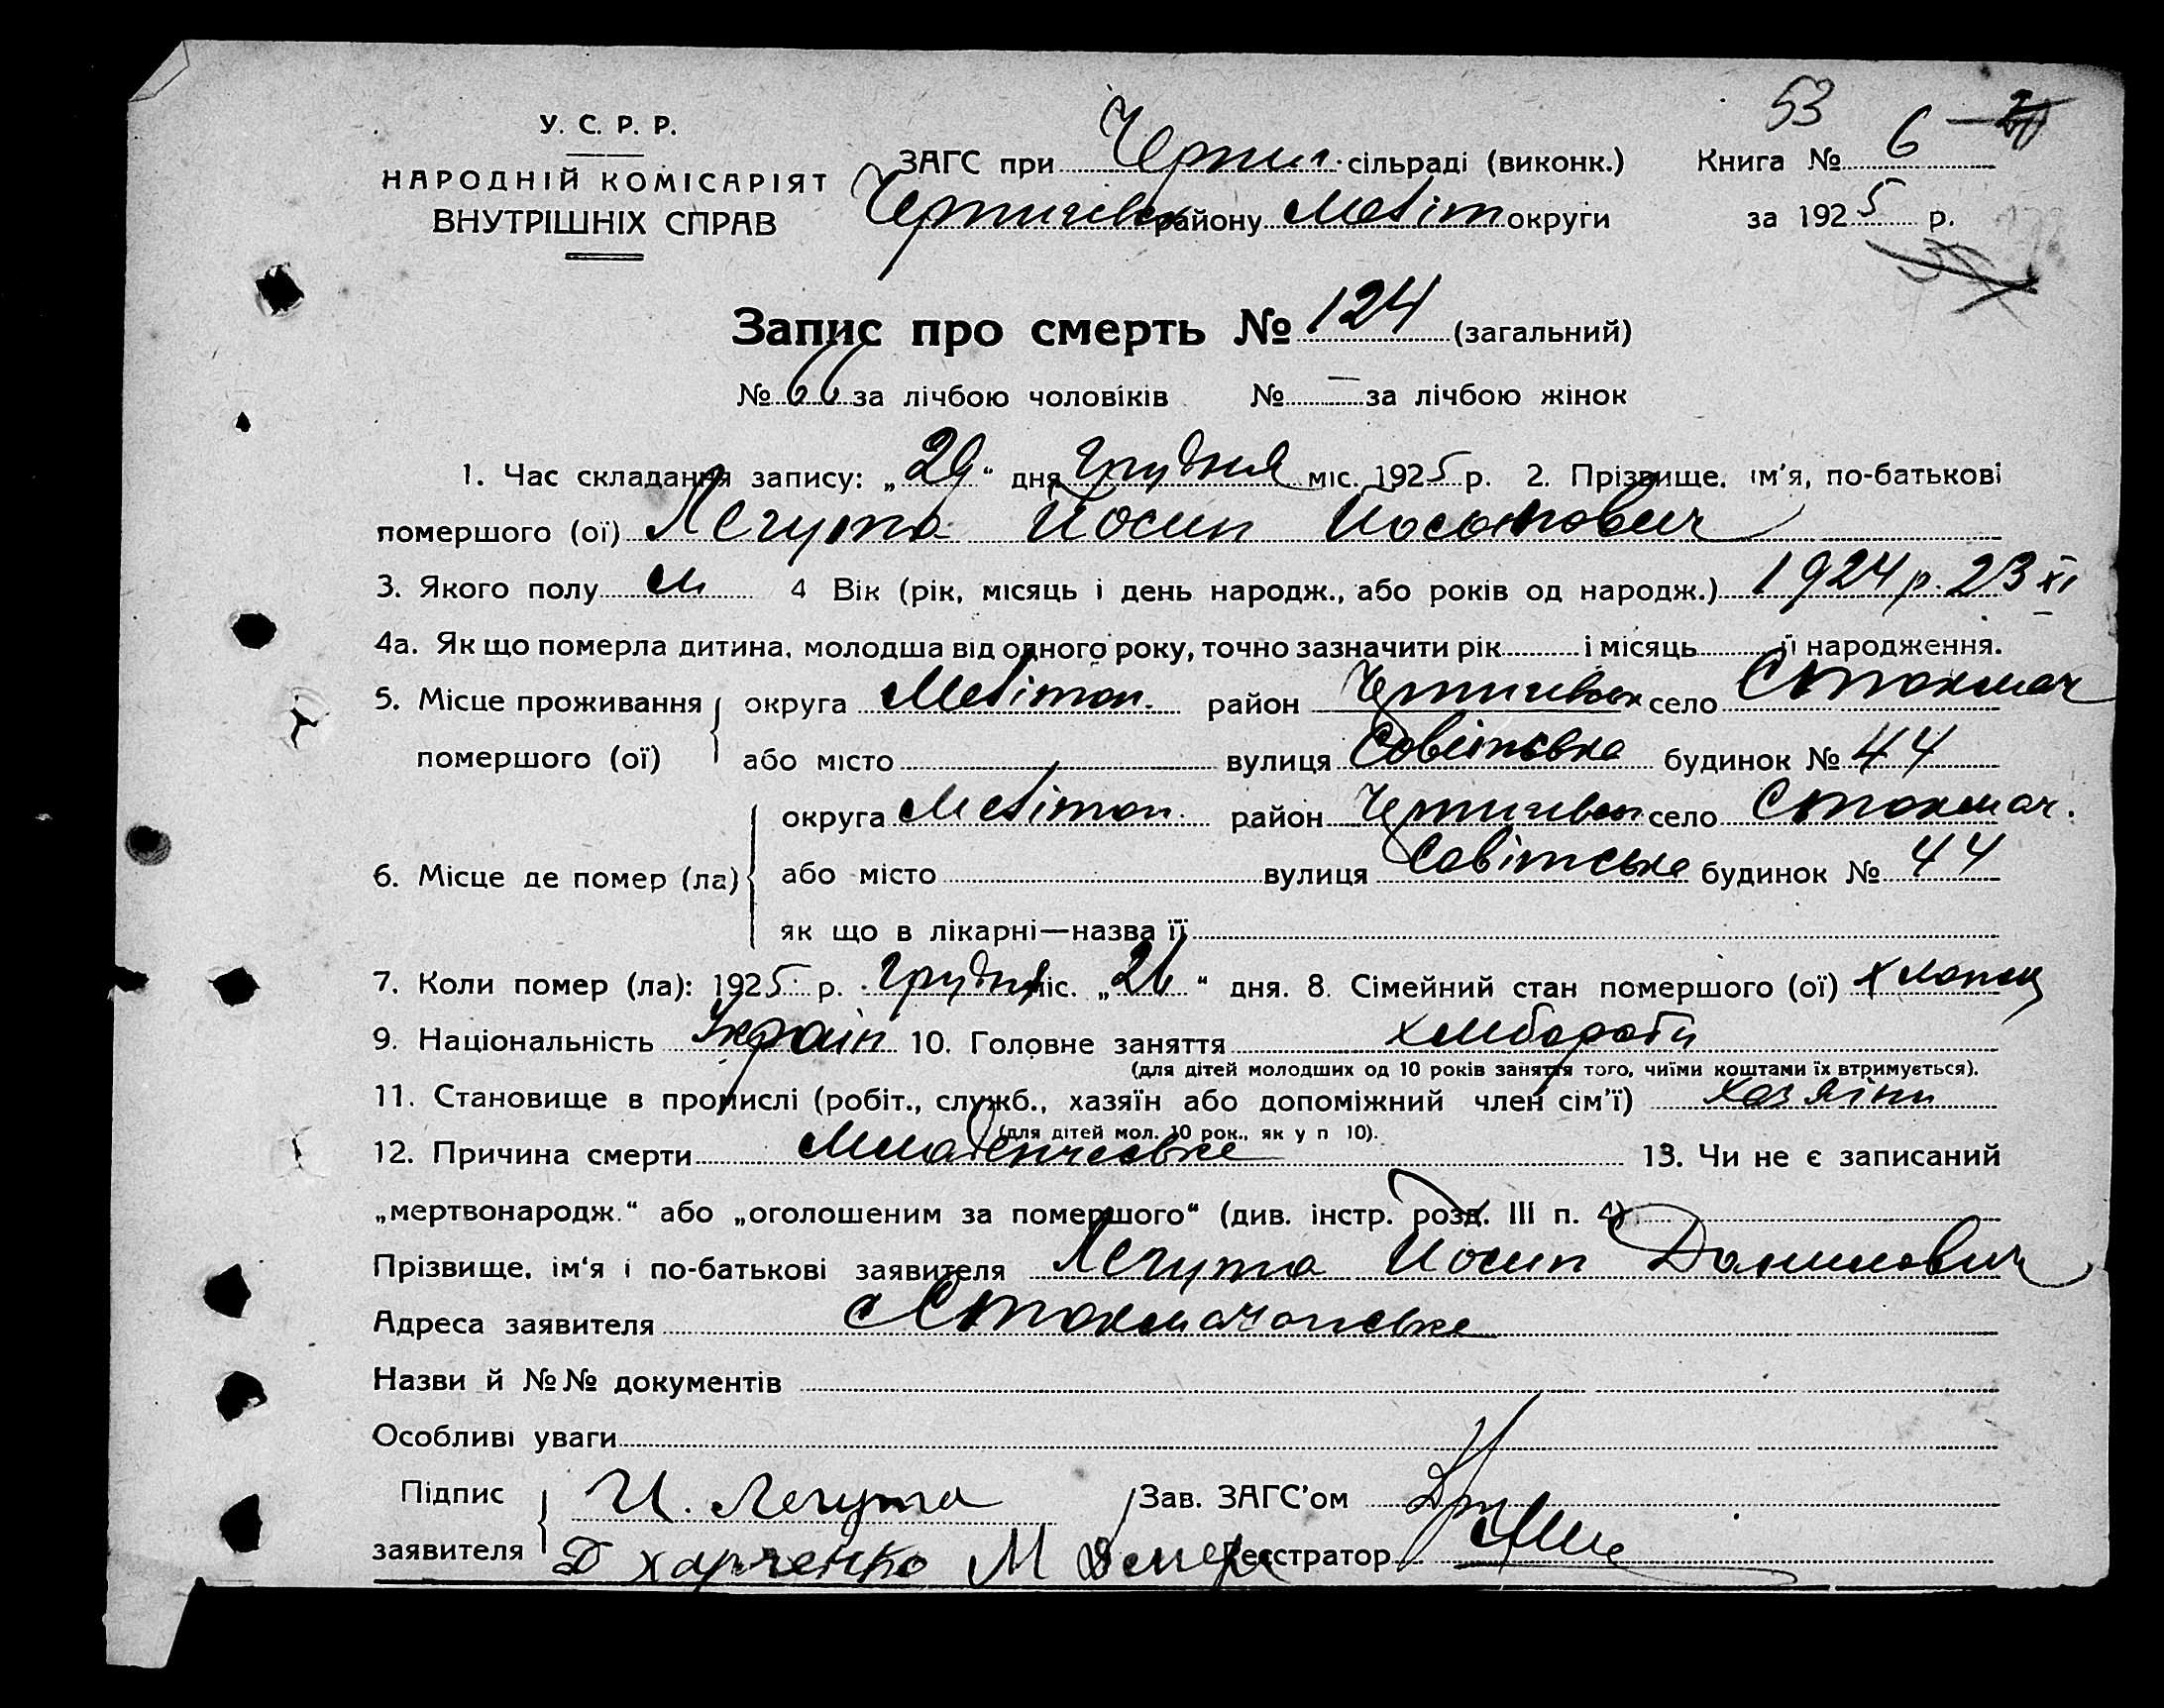 53
У. С. Р. Р.
НАРОДНІЙ КОМІСАРІЯТ
ВНУТРІШНІХ СПРАВ
ЗАГС при Черниг. сільраді (виконк.) Книга № 6
району Меліт округи за 1925 р.
Запис про смерть № 124 (загальний)
№ 66 за лічбою чоловіків № — за лічбою жінок
1. Час складання запису: „29“ дня грудня міс. 1925 р. 2. Прізвище, ім'я, по-батькові
помершого (ої) Легута Йосип
3. Якого полу м 4 Вік (рік, місяць і день народж., або років од народж.) 1924 р. 23 XI
4а. Як що померла дитина, молодша від одного року, точно зазначити рік і місяць її народження.
5. Місце проживання округа Мелітоп. район село Стокмач
помершого (ої) або місто вулиця будинок № 44
округа Мелітоп. район село Стокмач.
6. Місце де помер (ла) або місто вулиця Савітська будинок № 44
як що в лікарні—назва її
7. Коли помер (ла): 1925 р. грудня міс. „26“ дня. 8. Сімейний стан помершого (ої) хлопец
9. Національність Украін 10. Головне заняття
(для дітей молодших од 10 років заняття того, чиїми коштами їх втримується).
11. Становище в промислі (робіт., служб., хазяїн або допоміжний член сім'ї) хазяіни
(для дітей мол. 10 рок., як у п 10).
12. Причина смерти 13. Чи не є записаний
„мертвонародж.“ або „оголошеним за помершого“ (див. інстр. розд. III п. 4)
Прізвище, ім'я і по-батькові заявителя Легута Йосип Данилович
Адреса заявителя
Назви й №№ документів
Особливі уваги
Підпис И. Легута Зав. ЗАГС'ом
заявителя Д харченко М Реєстратор